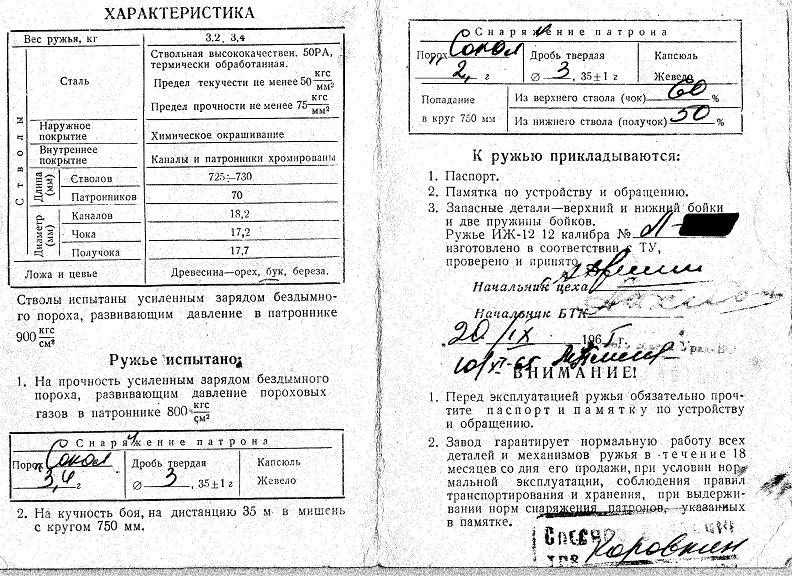 ХАРАКТЕРИСТИКА
Вес ружья, кг 3,2, 3,4
Стволы
Сталь
Ствольная высококачествен. 50РА,
термически обработанная.
Предел текучести не менее 50 кгс/мм²
Предел прочности не менее 75 кгс/мм²
Наружное
покрытие Химическое окрашивание
Внутреннее
покрытие Каналы и патронники хромированы
Длина (мм)
Стволов 725÷730
Патронников 70
Диаметр (мм)
Каналов 18,2
Чока 17,2
Получока 17,7
Ложа и цевье Древесина—орех, бук, береза.
Стволы испытаны усиленным зарядом бездымно-
го пороха, развивающим давление в патроннике
900 кгс/см²
Ружье испытано:
1. На прочность усиленным зарядом бездымного
пороха, развивающим давление пороховых
газов в патроннике 800 кгс/см²
Снаряжение патрона
Порох „Сокол" Дробь твердая Капсюль
3,4 г ∅ 3, 35±1 г Жевело
2. На кучность боя, на дистанцию 35 м в мишень
с кругом 750 мм.
Снаряжение патрона
Порох „Сокол" Дробь твердая Капсюль
2, г ∅ 3, 35±1 г Жевело
Попадание Из верхнего ствола (чок) 60 %
в круг 750 мм Из нижнего ствола (получок) 50 %
К ружью прикладываются:
1. Паспорт.
2. Памятка по устройству и обращению.
3. Запасные детали—верхний и нижний бойки
и две пружины бойков.
Ружье ИЖ-12 12 калибра № Л-
изготовлено в соответствии с ТУ,
проверено и принято
Начальник цеха
Начальник БТК
20/IX 1965 г.
10/XI-65
ВНИМАНИЕ!
1. Перед эксплуатацией ружья обязательно проч-
тите паспорт и памятку по устройству
и обращению.
2. Завод гарантирует нормальную работу всех
деталей и механизмов ружья в течение 18
месяцев со дня его продажи, при условии нор-
мальной эксплуатации, соблюдения правил
транспортирования и хранения, при выдержи-
вании норм снаряжения патронов, указанных
в памятке.
Коровкин